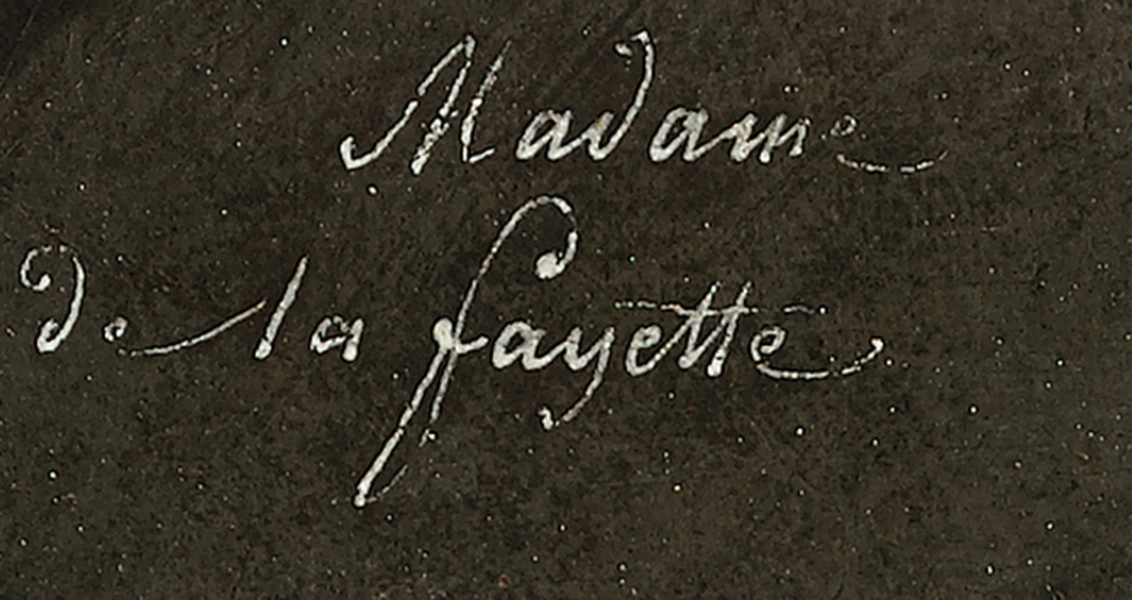 Madame
de la fayette